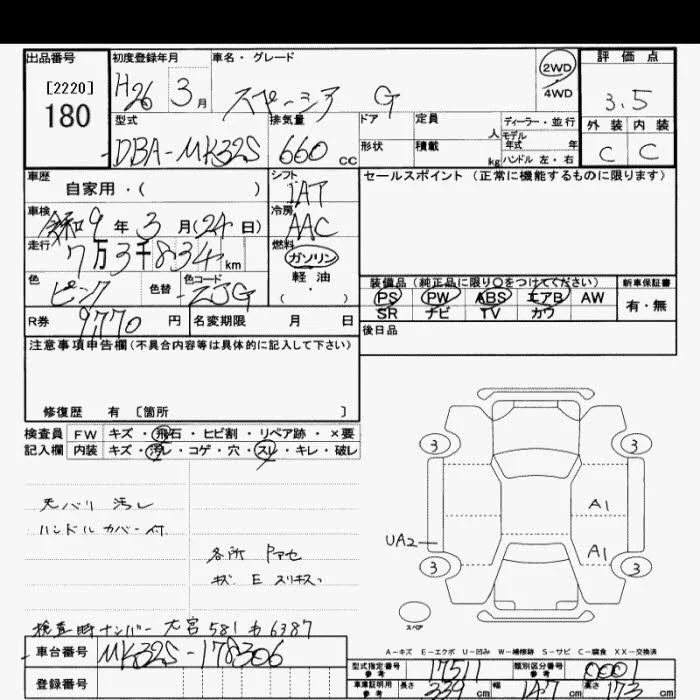 出品番号 初度登録年月 車名・グレード 2WD 4WD 評価点
[2220] 180 H26 3月 スペーシア G 3.5
型式 排気量 ドア 定員 人 ディーラー・並行 外装 内装
DBA-MK32S 660cc 形状 積載 kg モデル年式 年 ハンドル 左・右 C C
車歴 自家用・( ) シフト IAT セールスポイント(正常に機能するものに限ります)
車検 令和9年3月(24日) 冷房 AAC
走行 7万3千834km 燃料 ガソリン 軽油・( )
色 ピンク 色替 色コード ZJG
装備品(純正品に限り○をつけてください) 新車保証書
PS PW ABS エアB AW 有・無
SR ナビ TV カワ
R券 9770円 名変期限 月 日 後日品
注意事項申告欄(不具合内容等は具体的に記入して下さい)
修復歴 有 [箇所 ]
検査員 FW キズ・飛石・ヒビ割・リペア跡・×要
記入欄 内装 キズ・汚レ・コゲ・穴・スレ・キレ・破レ
天バリ 汚レ
ハンドルカバー付
各所
キズ E スリキズ
3 3
A1
UA2 A1
3 3
スペア
検査時ナンバー 大宮 581 6387
A-キズ E-エクボ U-凹み W-補修跡 S-サビ C-腐食 XX-交換済
車台番号 MK32S-178306
登録番号
型式指定番号 参考 17511 類別区分番号 参考 0001
車庫証明用 参考 長さ 339cm 幅 147cm 高さ 173cm